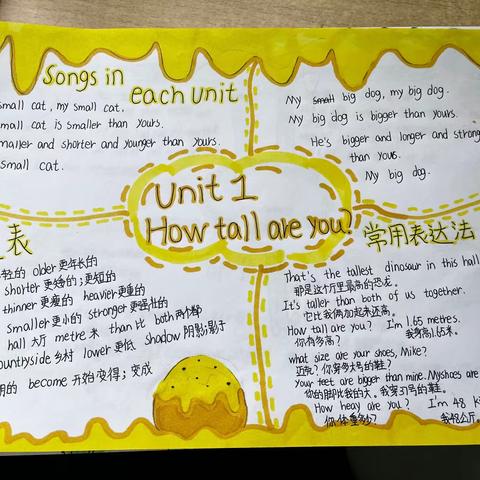 Songs in
each unit
small cat, my small cat.
small cat is smaller than yours.
smaller and shorter and younger than yours.
small cat.
My small big dog, my big dog.
My big dog is bigger than yours.
He's bigger and longer and strong
than yous.
My big dog.
Unit 1
How tall are you?
表
轻的 older 更年长的
shorter 更矮的；更短的
thinner 更瘦的 heavier 更重的
smaller 更小的 stronger 更强壮的
hall 大厅 metre 米 than 比 both 两个都
countryside 乡村 lower 更低 shadow 阴影；影子
的 become 开始变得；变成
常用表达法
That's the tallest dinosaur in this hall
那是这个厅里最高的恐龙。
It's taller than both of us together.
它比我俩加起来还高。
How tall are you? I'm 1.65 metres.
你有多高？ 我身高1.65米。
what size are your shoes, Mike?
迈克？你穿多大号的鞋？
your feet are bigger than mine. Myshoes are
你的脚比我的大。我穿37号的鞋。
How heay are you? I'm 48 ki
你体重多少？ 我48公斤。